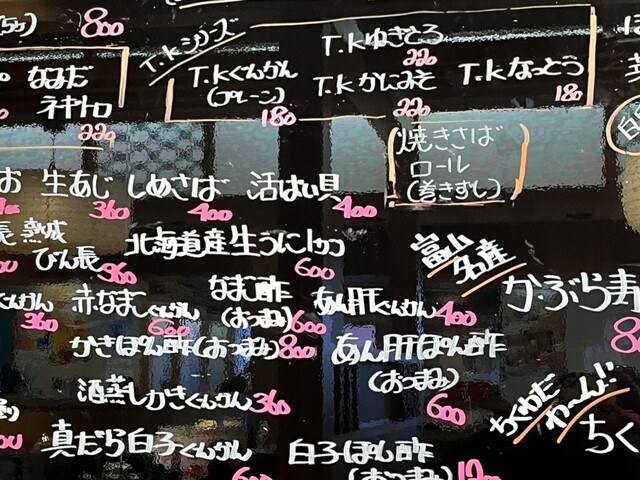 800
T.Kシリーズ
T.Kゆきとろ
220
なみだ
T.Kぐんかん
(プレーン)
180
T.Kかにみそ
220
T.Kなっとう
180
ネギトロ
220
焼きさば
ロール
(巻きずし)
お 生あじ
360
しめさば
400
活ばい貝
400
熟成
びん長 360
北海道産生うに1カン
600
富山
名産
かぶら寿
ぐんかん
360
赤なまこぐんかん
600
なまこ酢
(おつまみ) 600
あん肝ぐんかん 400
かきぽん酢(おつまみ) 800
あん肝ぽん酢
(おつまみ)
600
酒蒸しかきぐんかん 360
ちくわだ
わーん!!
ちく
真だら白子ぐんかん
白子ぽん酢
(おつまみ)